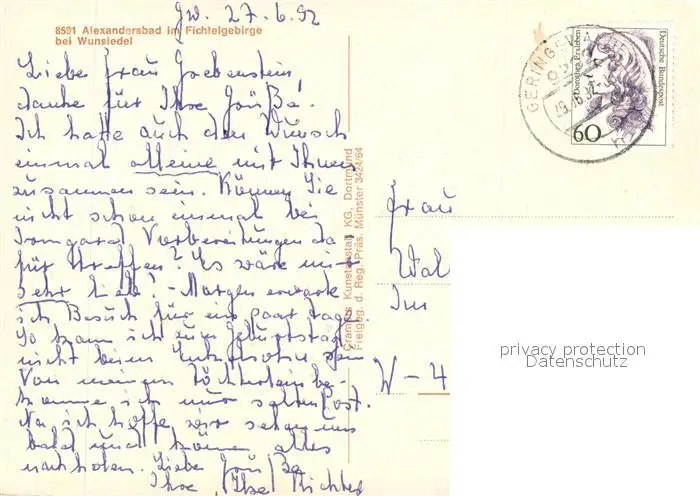 Gw. 27.6.92
8591 Alexandersbad im Fichtelgebirge
bei Wunsiedel
Liebe Frau Grebenstein,
danke für Ihre Grüße!
Ich hatte auch den Wunsch
einmal alleine mit Ihnen
zusammen sein. Können Sie
nicht schon einmal bei
Irmgard Vorbereitungen da
für treffen? Es wäre mir
sehr lieb! - Morgen erwarte
ich Besuch für ein paar Tage.
So kann ich zum Geburtstag
nicht beim
Von meinem Töchterlein be-
komme ich nur selten Post.
Na ich hoffe wir sehen uns
bald und können alles
nachholen. Liebe Grüße
Ihre Ilse Richter
Cramers Kunstanstalt KG, Dortmund
Freigeg. d. Reg.-Präs. Münster 3424/64
GERINGSWALDE
Dorothea Erxleben
Deutsche Bundespost
60
Frau
Wal
Im
W-4
privacy protection
Datenschutz